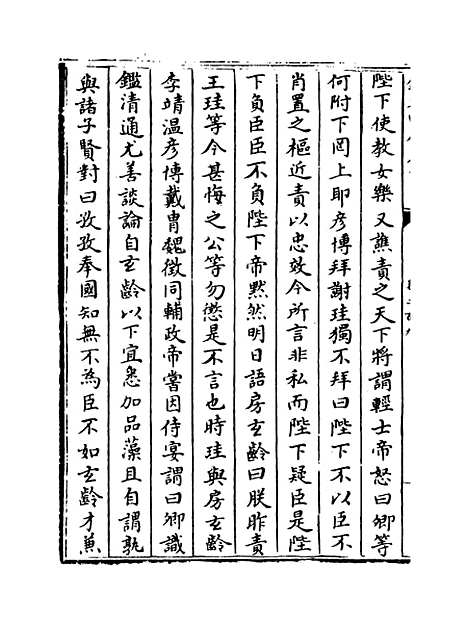 陛下使教女樂又譙責之天下將謂輕士帝怒曰卿等
何附下罔上耶彦博拜謝珪獨不拜曰陛下不以臣不
肖置之樞近責以忠效今所言非私而陛下疑臣是陛
下負臣臣不負陛下帝黙然明日語房玄齡曰朕昨責
王珪等今甚悔之公等勿懲是不言也時珪與房玄齡
李靖温彦博戴胄魏徴同輔政帝嘗因侍宴謂曰卿識
鑑清通尤善談論自玄齡以下宜悉加品藻且自謂孰
與諸子賢對曰孜孜奉國知無不為臣不如玄齡才兼